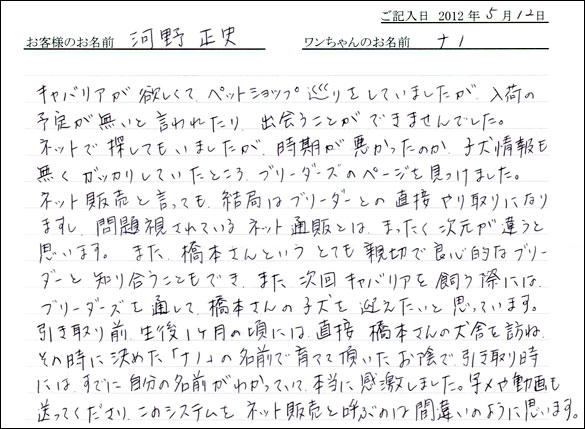 ご記入日 2012 年 5 月 12 日
お客様のお名前 河野 正史 ワンちゃんのお名前 ナノ
キャバリアが欲しくて、ペットショップ巡りをしていましたが、入荷の
予定が無いと言われたり、出会うことができませんでした。
ネットで探してもいましたが、時期が悪かったのか、子犬情報も
無くガッカリしていたところ、ブリーダーズのページを見つけました。
ネット販売と言っても、結局はブリーダーとの直接やり取りになり
ますし、問題視されているネット通販とは、まったく次元が違うと
思います。また、橋本さんというとても親切で良心的なブリー
ダーと知り合うこともでき、また次回キャバリアを飼う際には、
ブリーダーズを通して、橋本さんの子犬を迎えたいと思っています。
引き取り前、生後1ヶ月の頃には、直接橋本さんの犬舎を訪ね、
その時に決めた「ナノ」の名前で育てて頂いたお陰で、引き取り時
には、すでに自分の名前がわかっていて、本当に感激しました。写メや動画も
送ってくださり、このシステムを、ネット販売と呼ぶのは間違いのように思います。